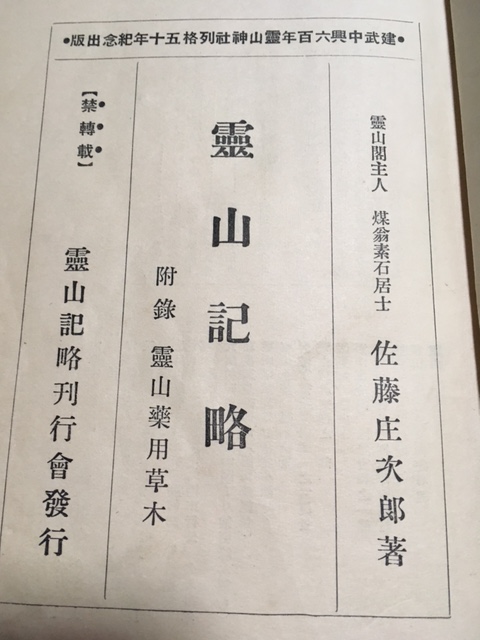 ●建武中興六百年靈山神社列格五十年紀念出版●
靈山閣主人 煤翁素石居士 佐藤庄次郎著
靈山記略
附錄 靈山藥用草木
【禁轉載】
靈山記略刊行會發行